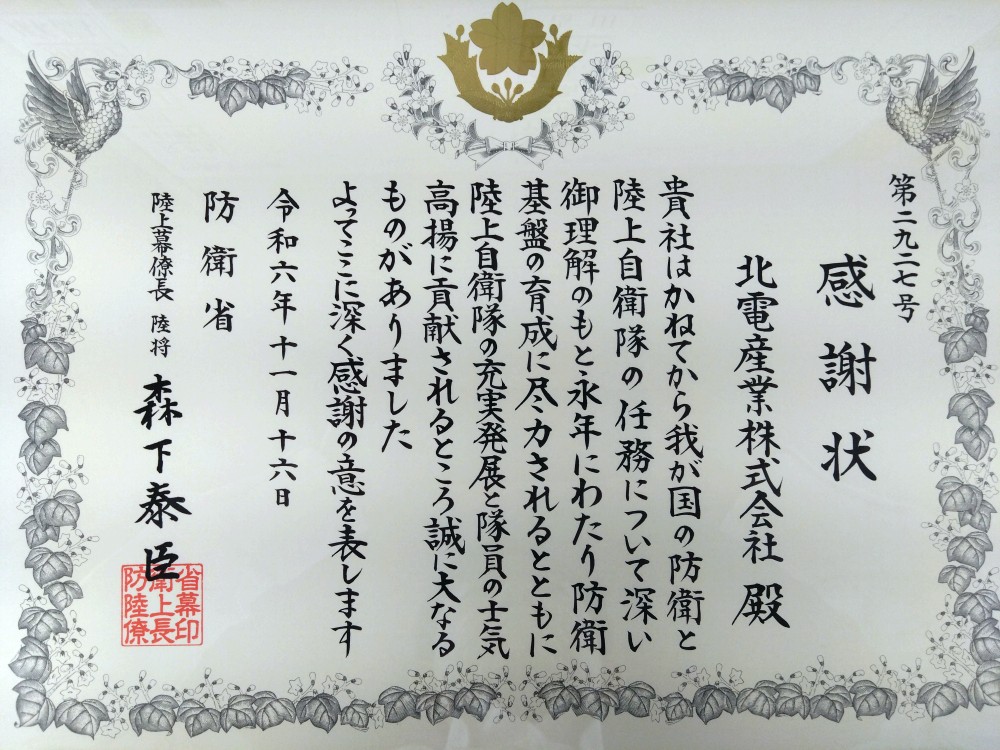 第二九二七号
感謝状
北電産業株式会社 殿
貴社はかねてから我が国の防衛と
陸上自衛隊の任務について深い
御理解のもと永年にわたり防衛
基盤の育成に尽力されるとともに
陸上自衛隊の充実発展と隊員の士気
高揚に貢献されるところ誠に大なる
ものがありました
よってここに深く感謝の意を表します
令和六年十一月十六日
防衛省
陸上幕僚長 陸将 森下泰臣
省幕印
衛上長
防陸僚